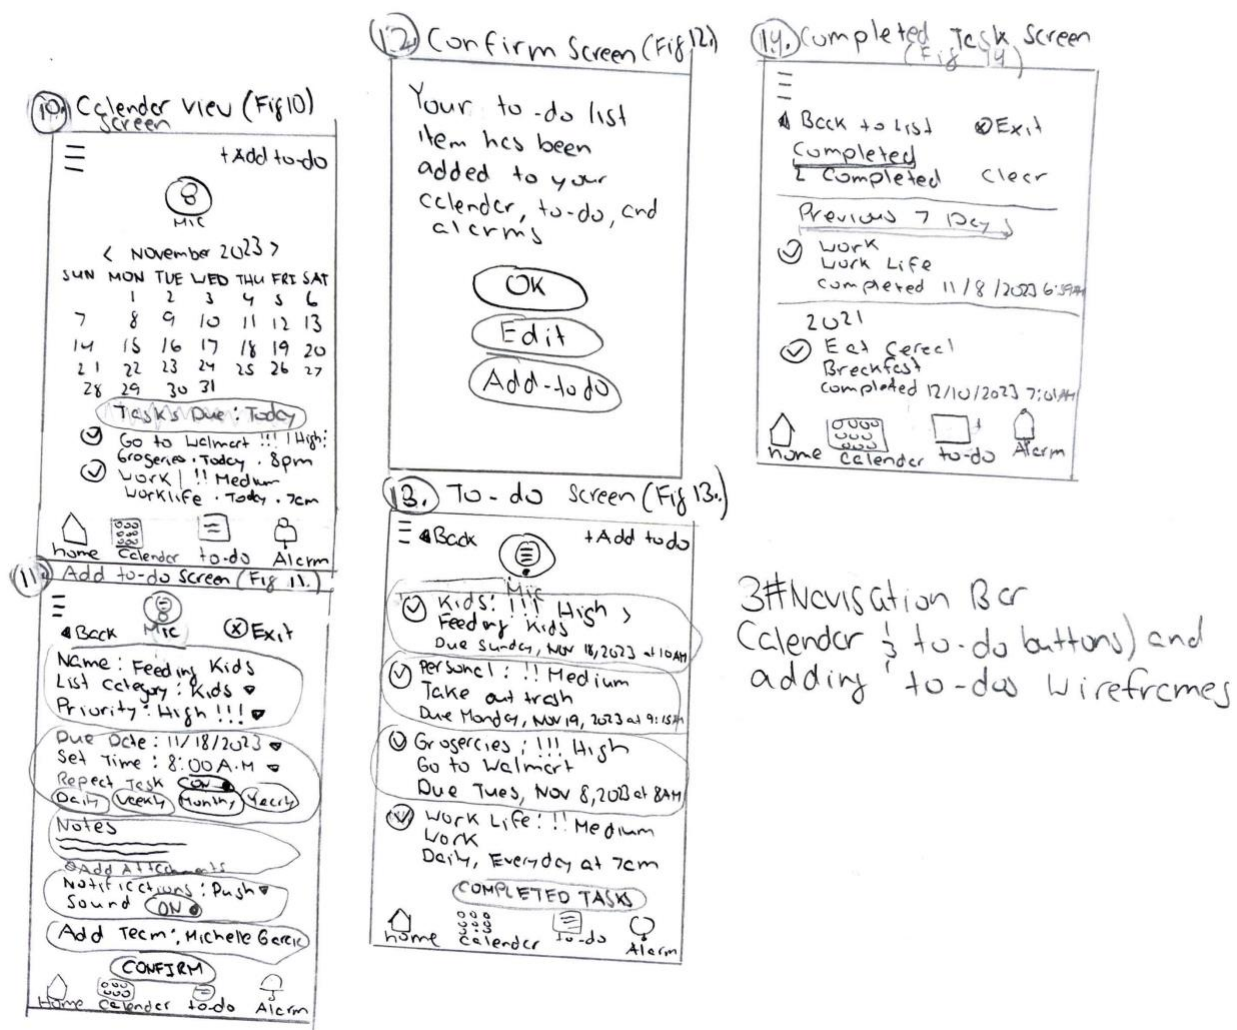 10. Calender view (Fig 10)
screen
+Add to-do
Mic
< November 2023 >
SUN MON TUE WED THU FRI SAT
1 2 3 4 5 6
7 8 9 10 11 12 13
14 15 16 17 18 19 20
21 22 23 24 25 26 27
28 29 30 31
Tasks Due: Today
Go to Walmart !!! | High:
Groseries . Today . 8pm
Work | !! Medium
Worklife . Today . 7am
home Calender to-do Alarm
11. Add to-do Screen (Fig 11.)
Mic
Back Exit
Name: Feeding Kids
List Category: Kids
Priority: High !!!
Due Date: 11/18/2023
Set Time: 8:00 A.M
Repeat Task ON
Daily Weekly Monthly Yearly
Notes
Add Attachments
Notifications: Push
Sound ON
Add Team: Michelle Garcia
CONFIRM
Home Calender to-do Alarm
12. Confirm Screen (Fig 12.)
Your to-do list
item has been
added to your
calender, to-do, and
alarms
OK
Edit
Add-to do
13. To-do screen (Fig 13.)
Back +Add to do
Mic
Kids: !!! High >
Feeding Kids
Due Sunday, Nov 18, 2023 at 10AM
Personal: !! Medium
Take out trash
Due Monday, Nov 19, 2023 at 9:15AM
Groserçies: !!! High
Go to Walmart
Due Tues, Nov 8, 2023 at 8AM
Work Life: !! Medium
Work
Daily, Everyday at 7am
COMPLETED TASKS
home Calender to-do Alarm
14. Completed Task Screen
(Fig 14)
Back to List Exit
Completed
2 Completed Clear
Previous 7 Days
Work
Work Life
completed 11/8/2023 6:59AM
2021
Eat Cereal
Breakfast
completed 12/10/2023 7:01AM
home Calender to-do Alarm
3# Navisation Bar
Calender & to-do buttons) and
adding to-dos Wireframes